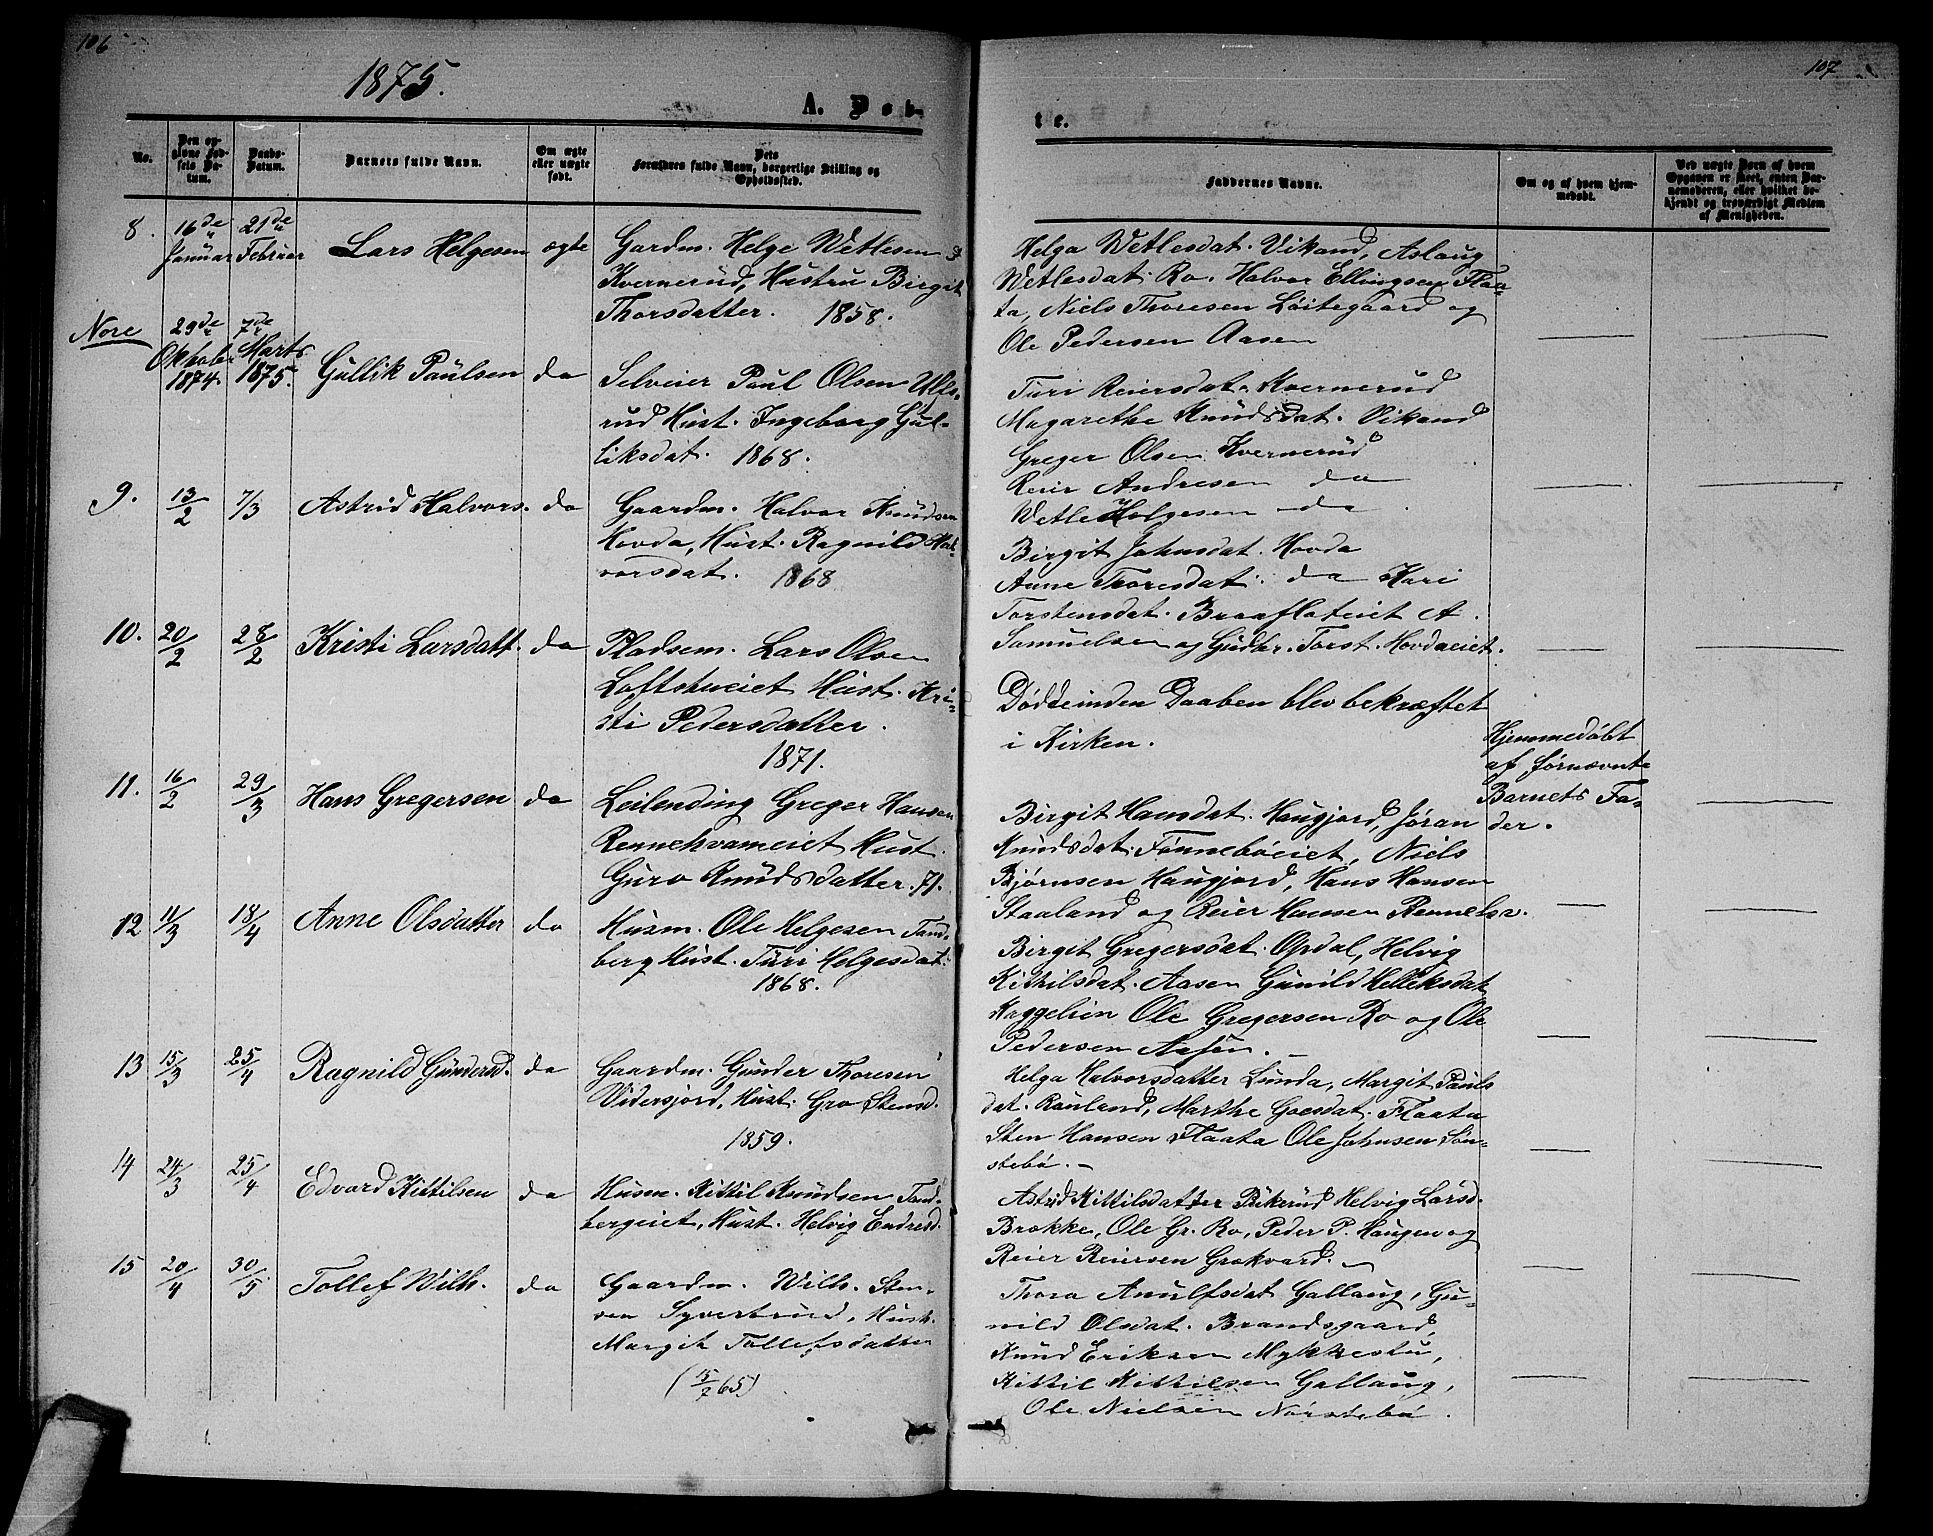 106
1875.
A. Døb-
No.
Den op-
givne Fød-
sels Da-
tum.
Daabs-
Datum.
Barnets fulde Navn.
Om ægte
eller uægte
født.
Dets
Forældres fulde Navn, borgerlige Stilling og
Opholdssted.
8. 16de Januar 21de Februar Lars Helgesen ægte Gardm. Helge Wetlesen
Kvernerud, Hustru Birgit
Thorsdatter. 1858.
Nore 29de Oktober 1874. 7de Marts 1875. Gullik Paulsen do Selveier Paul Olsen Ulfs-
rud Hust. Ingeborg Gul-
liksdat. 1868.
9. 13/2 7/3 Astrid Halvors. do Gaardm. Halvor Knudsen
Hovda, Hust. Ragnild Hal-
vorsdat. 1868
10. 20/2 28/2 Kristi Larsdatt. do Pladsem. Lars Olsen
Loftstueiet Hust. Kri-
sti Pedersdatter.
1871.
11. 16/2 29/3 Hans Gregersen do Leilending Greger Hansen
Rennehvameiet Hust.
Guro Knudsdatter. 71.
12 11/3 18/4 Anne Olsdatter do Husm. Ole Helgesen Tand-
berg Hust. Turi Helgesdat.
1868.
13 15/3 25/4 Ragnild Gundersd. do Gaardm. Gunder Thoresen
Vidersjord, Hust. Gro Stensd.
1859.
14 24/3 25/4 Edvard Kittilsen do Husm. Kittil Knudsen Tand-
bergeiet, Hust. Helvig Endresd.
15 20/4 30/5 Tollef Wilh. do Gaardm. Wilh. Sten-
sen Syverbrud, Hust.
Margit Tollefsdatter
(15/2 65)
107
te.
Faddernes Navne.
Om og af hvem hjem-
medøbt.
Ved uægte Børn af hvem
Opgaven er skeet, enten Bar-
nemoderen, eller hvilket be-
kjendt og troværdigt Medlem
af Menigheden.
Helga Wetlesdat. Vikand, Aslaug
Wetlesdat. Ro. Halvor Ellingsen Flaa-
ta, Niels Thoresen Løitegaard og
Ole Pedersen Aasen
Turi Reiersdat. Kvernerud
Magarethe Knudsdat. Vikand
Greger Olsen Kvernerud
Reier Andresen do
Wetle Helgesen do.
Birgit Johnsdat. Hovda
Anne Thoresdat. do Kari
Torstensdat. Braaflateiet A.
Samuelsen og Gudbr. Torst. Hovdaeiet.
Døde inden Daaben blev bekræftet
i Kirken.
Hjemmedøbt
af førnævnte
Barnets Fa-
der.
Birgit Hansdat. Haugjord, Jøran
Knudsdat. Tønnebøeiet, Niels
Bjørnsen Haugjord, Hans Hansen
Staaland og Reier Hansen Rennehv.
Birgit Gregersdat. Opdal, Helvig
Kittilsdat. Aasen Gunild Helleksdat
Haggelien Ole Gregersen Ro og Ole
Pedersen Aasen.
Helga Halvorsdatter Lunda, Margit Pauls
dat. Rauland, Marthe Goesdat. Flaata
Sten Hansen Flaata Ole Johnsen Søn-
stebø.
Astrid Kittilsdatter Bikerud Helvig Larsd.
Brokke, Ole Gr. Ro, Peder P. Haugen og
Reier Reiersen Grøkvard.
Thora Anulfsdat Gallaug, Gu-
nild Olsdat. Brandsgaard,
Knud Eriksen Mykkestu,
Kittil Kittilsen Gallaug,
Ole Nielsen Nørstebø.